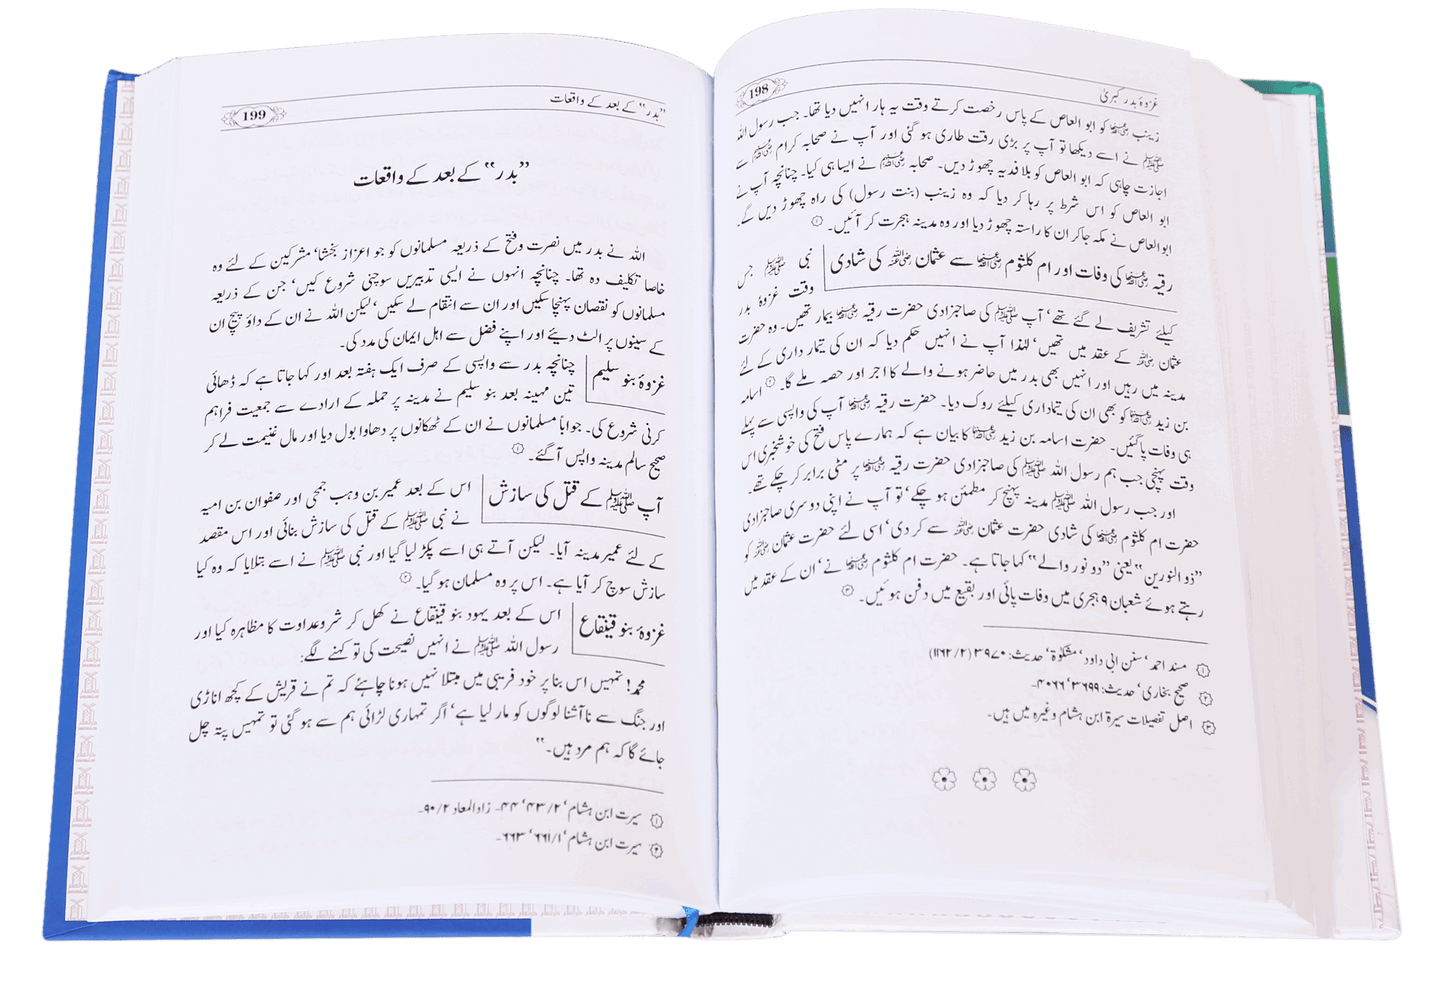 198
غزوۂ بدر کبریٰ
زینب ؓ کو ابو العاص کے پاس رخصت کرتے وقت یہ ہار انہیں دیا تھا۔ جب رسول اللہ
ﷺ نے اسے دیکھا تو آپ پر بڑی رقت طاری ہو گئی اور آپ نے صحابہ کرام ؓ سے
اجازت چاہی کہ ابو العاص کو بلا فدیہ چھوڑ دیں۔ صحابہ ؓ نے ایسا ہی کیا۔ چنانچہ آپ نے
ابو العاص کو اس شرط پر رہا کر دیا کہ وہ زینب (بنت رسول) کی راہ چھوڑ دیں گے۔
ابو العاص نے مکہ جا کر ان کا راستہ چھوڑ دیا اور وہ مدینہ ہجرت کر آئیں۔ ①
رقیہ ؓ کی وفات اور ام کلثوم ؓ سے عثمان ؓ کی شادی
نبی ﷺ جس
وقت غزوۂ بدر
کیلئے تشریف لے گئے تھے‘ آپ ﷺ کی صاحبزادی حضرت رقیہ ؓ بیمار تھیں۔ وہ حضرت
عثمان ؓ کے عقد میں تھیں‘ لہٰذا آپ نے انہیں حکم دیا کہ ان کی تیمار داری کے لئے
مدینہ میں رہیں اور انہیں بھی بدر میں حاضر ہونے والے کا اجر اور حصہ ملے گا۔ ② اسامہ
بن زید ؓ کو بھی ان کی تیمارداری کیلئے روک دیا۔ حضرت رقیہ ؓ آپ کی واپسی سے پہلے
ہی وفات پا گئیں۔ حضرت اسامہ بن زید ؓ کا بیان ہے کہ ہمارے پاس فتح کی خوشخبری اس
وقت پہنچی جب ہم رسول اللہ ﷺ کی صاحبزادی حضرت رقیہ ؓ پر مٹی برابر کر چکے تھے۔
اور جب رسول اللہ ﷺ مدینہ پہنچ کر مطمئن ہو چکے‘ تو آپ نے اپنی دوسری صاحبزادی
حضرت ام کلثوم ؓ کی شادی حضرت عثمان ؓ سے کر دی‘ اسی لئے حضرت عثمان ؓ کو
”ذو النورین“ یعنی ”دو نور والے“ کہا جاتا ہے۔ حضرت ام کلثوم ؓ نے‘ ان کے عقد میں
رہتے ہوئے شعبان ۹ ہجری میں وفات پائی اور بقیع میں دفن ہوئیں۔ ③
① مسند احمد‘ سنن ابی داود‘ مشکوٰۃ‘ حدیث: ۳۹۷۰ (۲/۱۱۶۲)
② صحیح بخاری‘ حدیث: ۳۶۹۹‘ ۴۰۶۶۔
③ اصل تفصیلات سیرۃ ابن ہشام وغیرہ میں ہیں۔
”بدر“ کے بعد کے واقعات
199
”بدر“ کے بعد کے واقعات
اللہ نے بدر میں نصرت و فتح کے ذریعہ مسلمانوں کو جو اعزاز بخشا‘ مشرکین کے لئے وہ
خاصا تکلیف دہ تھا۔ چنانچہ انہوں نے ایسی تدبیریں سوچنی شروع کیں‘ جن کے ذریعہ
مسلمانوں کو نقصان پہنچا سکیں اور ان سے انتقام لے سکیں‘ لیکن اللہ نے ان کے داؤ پیچ ان
کے سینوں پر الٹ دیئے اور اپنے فضل سے اہل ایمان کی مدد کی۔
غزوۂ بنو سلیم
چنانچہ بدر سے واپسی کے صرف ایک ہفتہ بعد اور کہا جاتا ہے کہ ڈھائی
تین مہینہ بعد بنو سلیم نے مدینہ پر حملہ کے ارادے سے جمعیت فراہم
کرنی شروع کی۔ جواباً مسلمانوں نے ان کے ٹھکانوں پر دھاوا بول دیا اور مال غنیمت لے کر
صحیح سالم مدینہ واپس آ گئے۔ ①
آپ ﷺ کے قتل کی سازش
اس کے بعد عمیر بن وہب جمحی اور صفوان بن امیہ
نے نبی ﷺ کے قتل کی سازش بنائی اور اس مقصد
کے لئے عمیر مدینہ آیا۔ لیکن آتے ہی اسے پکڑ لیا گیا اور نبی ﷺ نے اسے بتلایا کہ وہ کیا
سازش سوچ کر آیا ہے۔ اس پر وہ مسلمان ہو گیا۔ ②
غزوۂ بنو قینقاع
اس کے بعد یہود بنو قینقاع نے کھل کر شر و عداوت کا مظاہرہ کیا اور
رسول اللہ ﷺ نے انہیں نصیحت کی تو کہنے لگے:
محمد! تمہیں اس بنا پر خود فریبی میں مبتلا نہیں ہونا چاہئے کہ تم نے قریش کے کچھ اناڑی
اور جنگ سے نا آشنا لوگوں کو مار لیا ہے‘ اگر تمہاری لڑائی ہم سے ہو گئی تو تمہیں پتہ چل
جائے گا کہ ہم مرد ہیں۔“
① سیرت ابن ہشام‘ ۲/۴۳‘ ۴۴۔ زاد المعاد ۲/۹۰۔
② سیرت ابن ہشام‘ ۱/۶۶۱‘ ۶۶۳۔